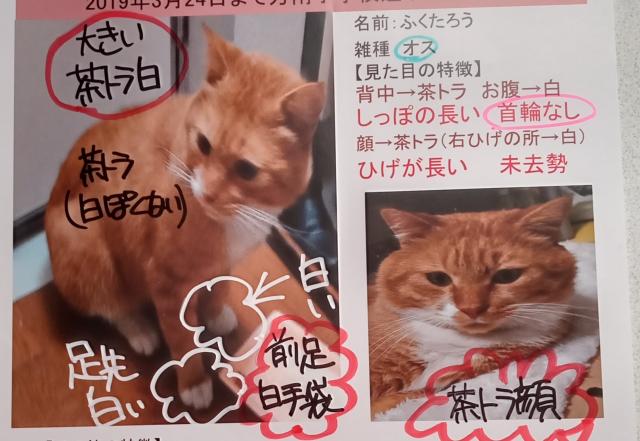 2019年3月24日まで
大きい
茶トラ白
茶トラ
(白ぽくない)
白い
足先
白い
前足
白手袋
名前:ふくたろう
雑種 オス
【見た目の特徴】
背中→茶トラ お腹→白
しっぽの長い 首輪なし
顔→茶トラ(右ひげの所→白)
ひげが長い 未去勢
茶トラ顔